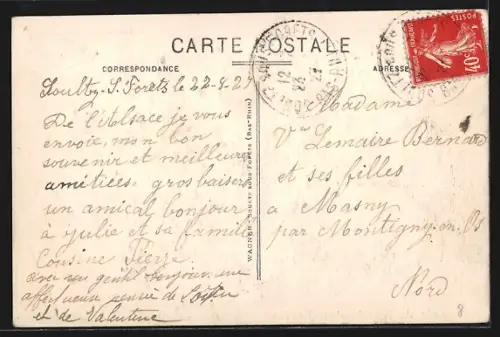 CARTE POSTALE
CORRESPONDANCE
Soultz-S. Forêts le 22-8-27
De l'Alsace je vous
envoie, mon bon
souvenir et meilleures
amitiées, gros baisers
un amical bonjour
à Julie et sa famille
Cousine Pierre
avec un gentil bonjour, une
affectueux pensée de
et de Valentine
WAGNER, SOULTZ SOUS FORÊTS (BAS-RHIN)
ADRESSE
Madame
Vve Lemaire Bernard
et ses filles
a Masny
par Montigny-en-Os
Nord
8
POSTES
40c